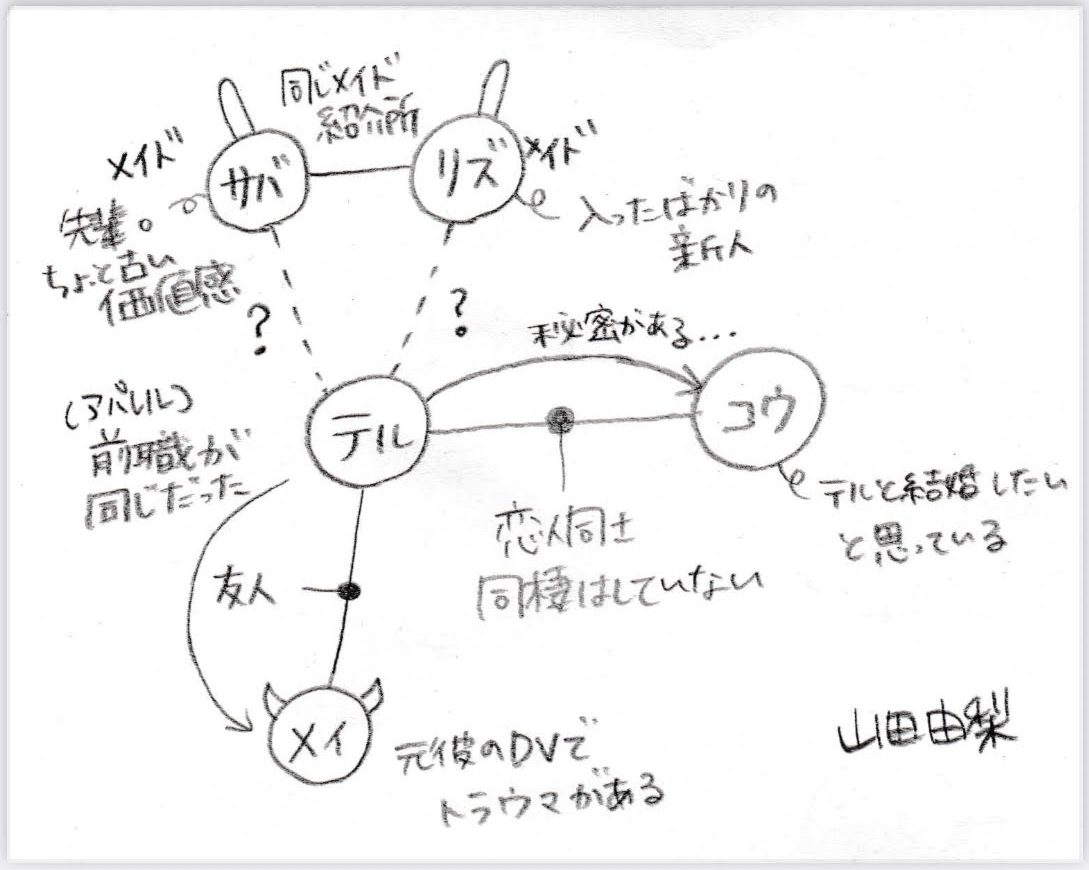 同じメイド
紹介所
メイド
サバ
リズ
メイド
先輩。
ちょっと古い
価値感
入ったばかりの
新人
?
?
秘密がある...
テル
コウ
(アパレル)
前職が
同じだった
テルと結婚したい
と思っている
恋人同士
同棲はしていない
友人
メイ
元彼のDVで
トラウマがある
山田由梨